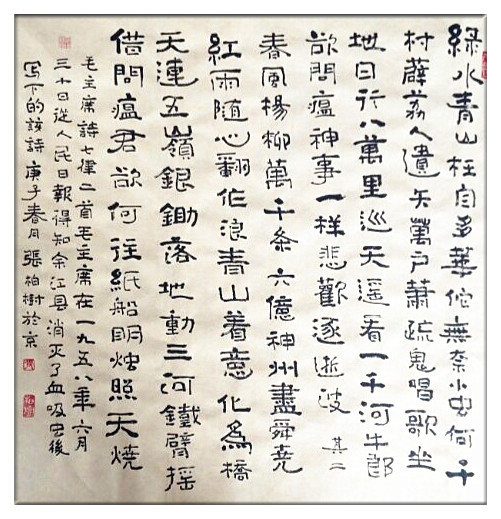 綠水青山枉自多華佗無奈小虫何千
村薜荔人遺矢萬戶蕭疏鬼唱歌坐
地日行八萬里巡天遥看一千河牛郎
欲問瘟神事一樣悲歡逐逝波 其二
春風楊柳萬千条六億神州盡舜堯
紅雨随心翻作浪青山着意化為橋
天連五嶺銀鋤落地動三河鐵臂摇
借問瘟君欲何往紙船明烛照天燒
毛主席詩七律二首毛主席在一九五八年六月
三十日從人民日報得知余江县消灭了血吸虫後
写下的該詩 庚子春月張柏樹於京